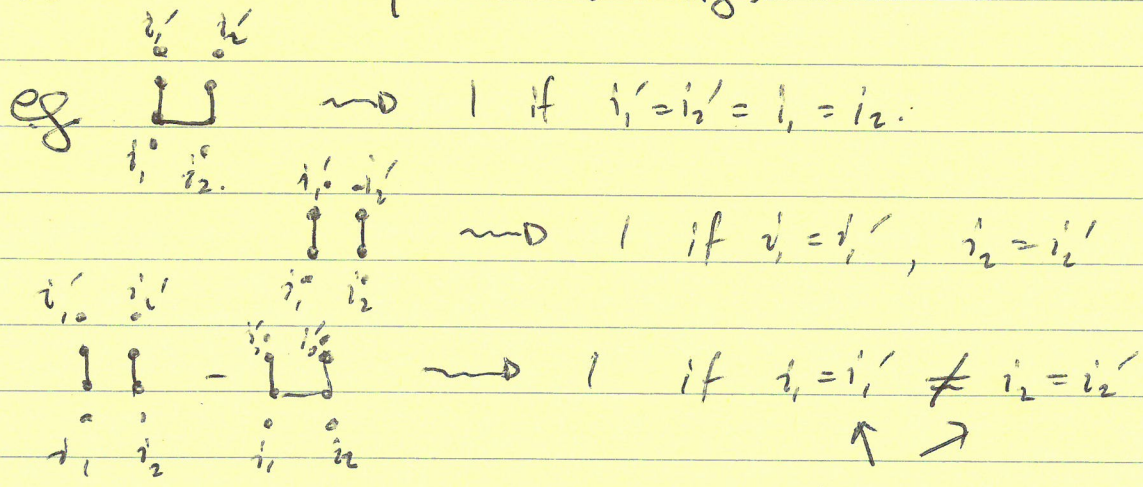 i₁′ i₂′
eg ⇝ 1 if i₁′ = i₂′ = i₁ = i₂.
i₁ i₂.
i₁′ i₂′
⇝ 1 if i₁ = i₁′, i₂ = i₂′
i₁ i₂
i₁′ i₂′ i₁′ i₂′
- ⇝ 1 if i₁ = i₁′ ≠ i₂ = i₂′
↑ ↗
i₁ i₂ i₁ i₂